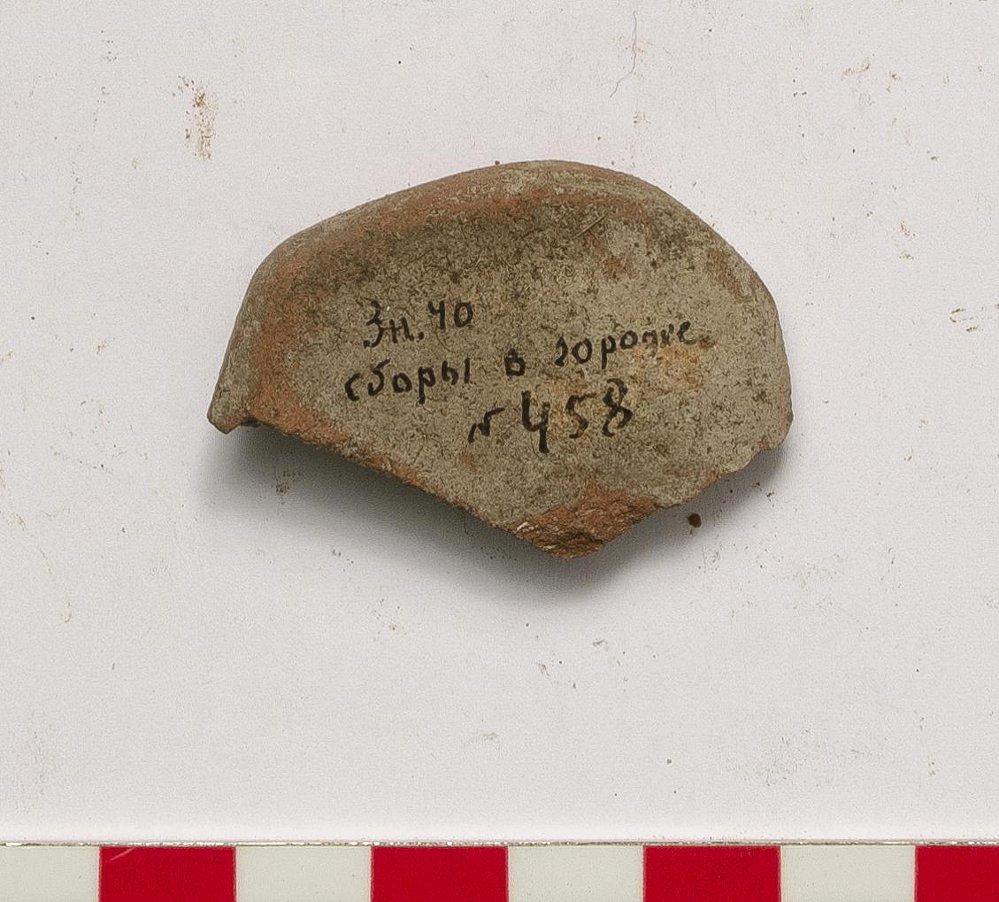 Зн. 40
сборы в городке
№ 458